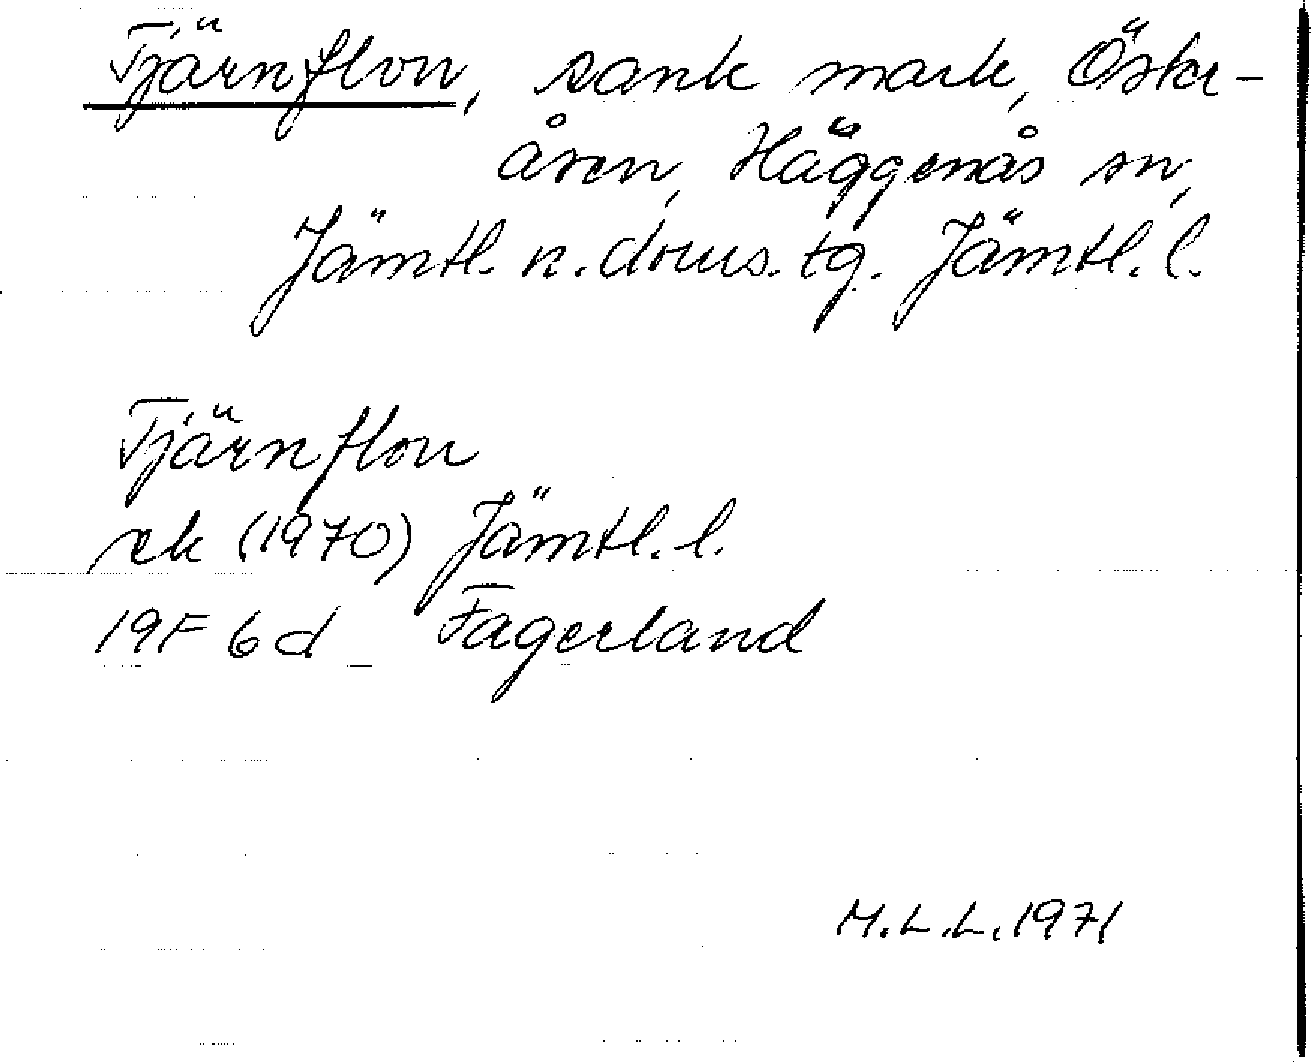 Tjärnflon, sank mark, Öster-
åsen, Häggenås sn,
Jämtl. n. doms. tg. Jämtl. l.
Tjärnflon
ek (1970) Jämtl. l.
19F 6d Fagerland
M.L.L. 1971